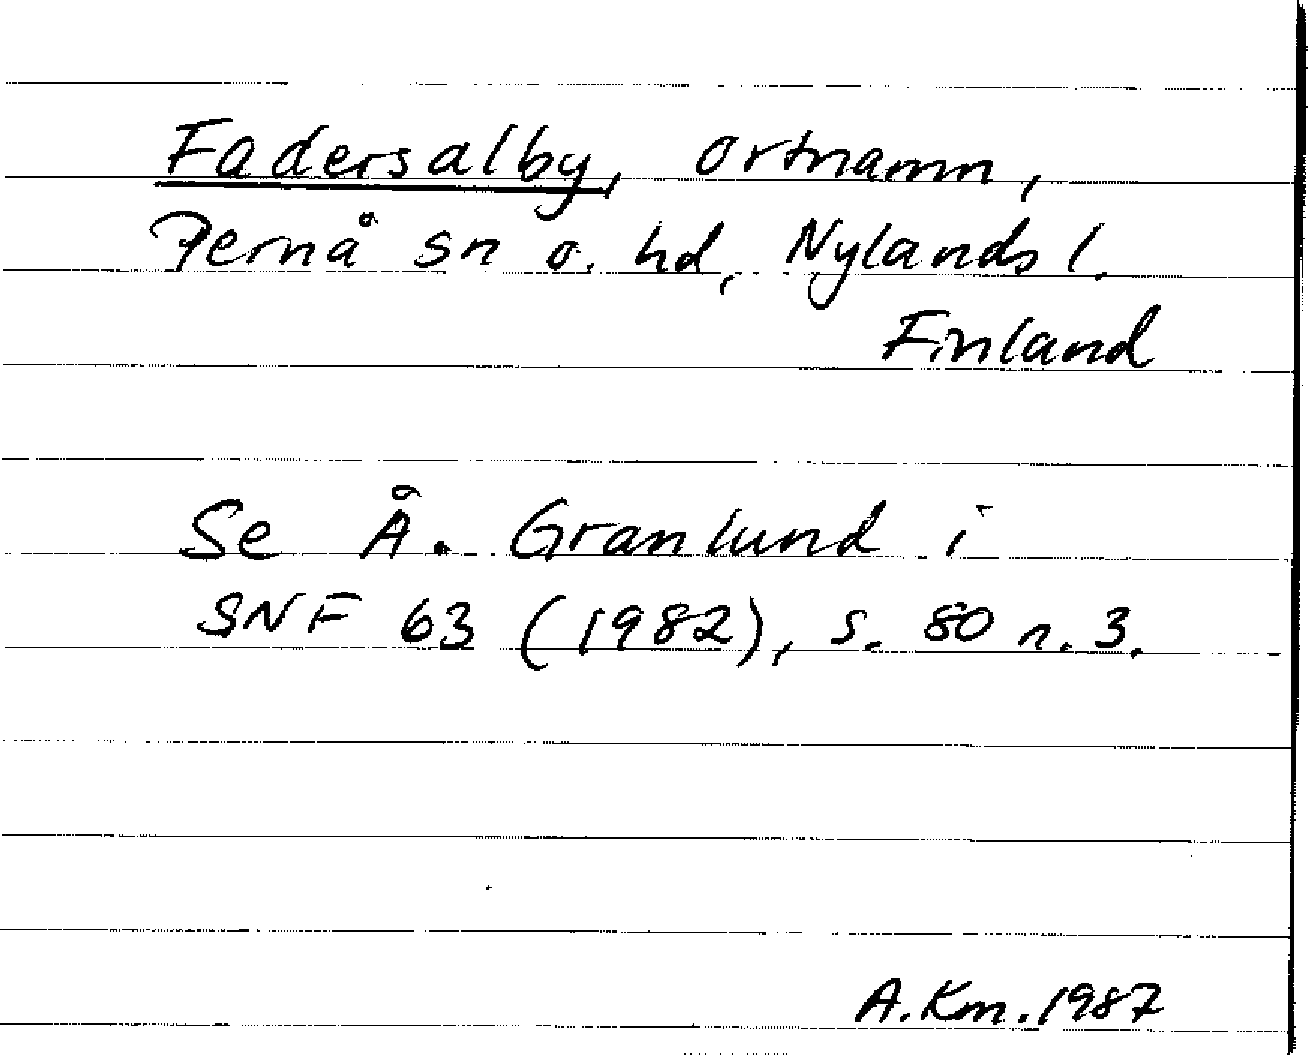 Fadersalby, ortnamn,
Pernå sn o. hd, Nylands l.
Finland
Se Å. Granlund i
SNF 63 (1982), s. 80 n. 3.
A.Km. 1987